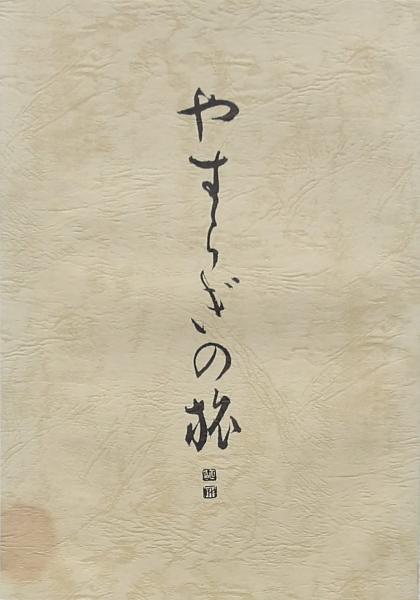 やすらぎの旅